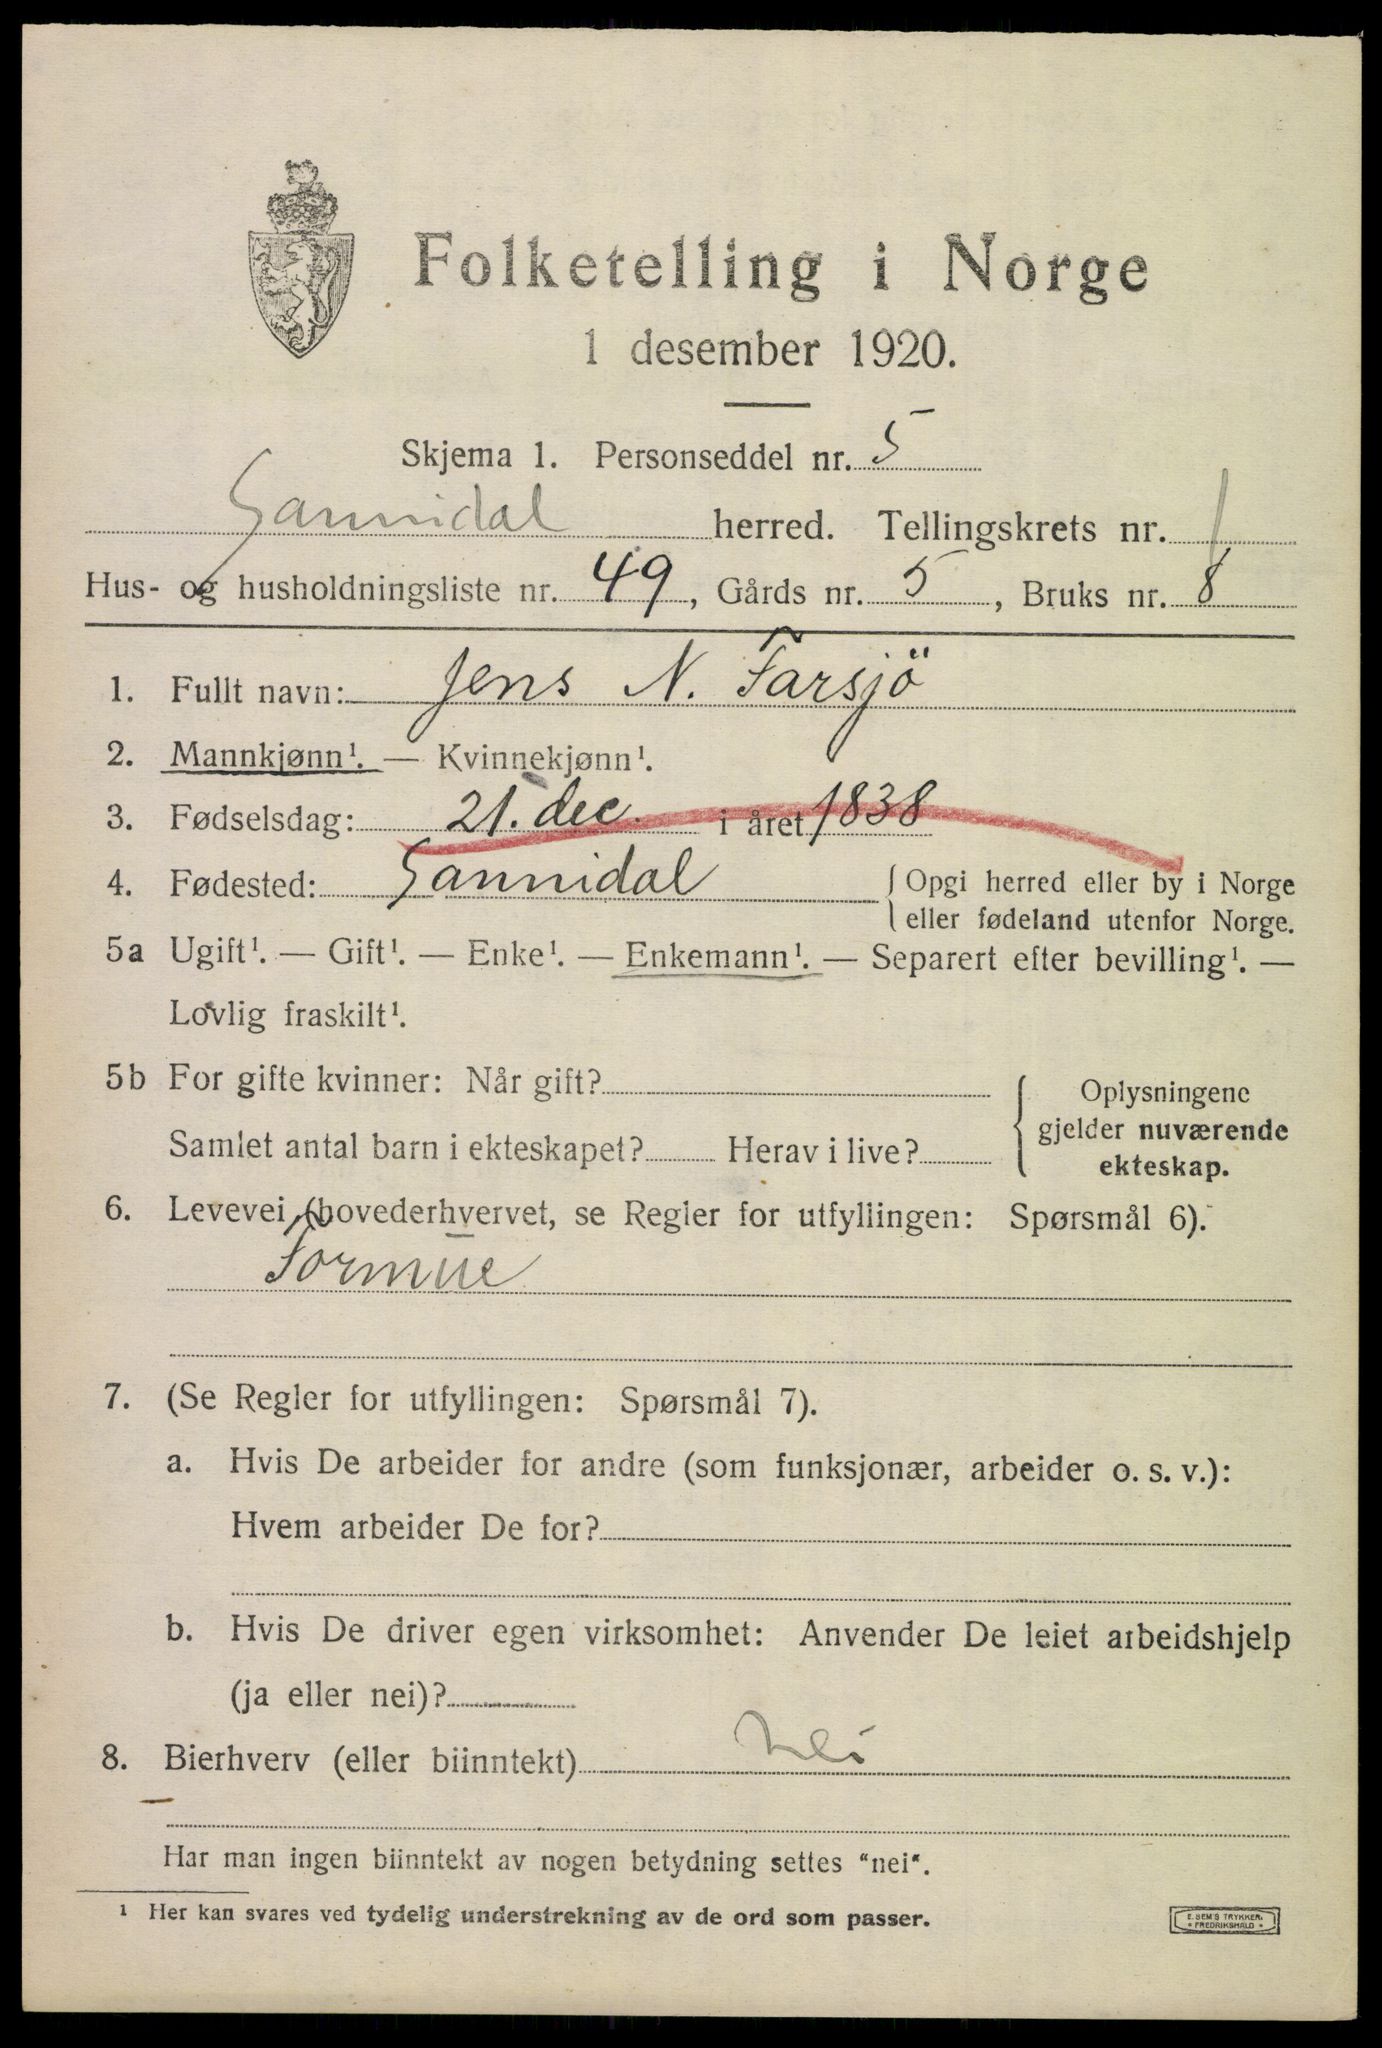 Folketelling i Norge
1 desember 1920.
Skjema 1. Personseddel nr. 5
Sannidal herred. Tellingskrets nr. 1
Hus- og husholdningsliste nr. 49, Gårds nr. 5, Bruks nr. 8
1. Fullt navn: Jens N. Farsjö
2. Mannkjønn¹. — Kvinnekjønn¹.
3. Fødselsdag: 21. dec. i året 1838
4. Fødested: Sannidal {Opgi herred eller by i Norge
eller fødeland utenfor Norge.
5a Ugift¹. — Gift¹. — Enke¹. — Enkemann¹. — Separert efter bevilling¹. —
Lovlig fraskilt¹.
5b For gifte kvinner: Når gift? { Oplysningene
gjelder nuværende
Samlet antal barn i ekteskapet? Herav i live?
ekteskap.
6. Levevei (hovederhvervet, se Regler for utfyllingen: Spørsmål 6).
Formue
7. (Se Regler for utfyllingen: Spørsmål 7).
a. Hvis De arbeider for andre (som funksjonær, arbeider o. s. v.):
Hvem arbeider De for?
b. Hvis De driver egen virksomhet: Anvender De leiet arbeidshjelp
(ja eller nei)?
8. Bierhverv (eller biinntekt) Nei
Har man ingen biinntekt av nogen betydning settes "nei".
¹ Her kan svares ved tydelig understrekning av de ord som passer.
E. SEM'S TRYKKERI
• FREDRIKSHALD •